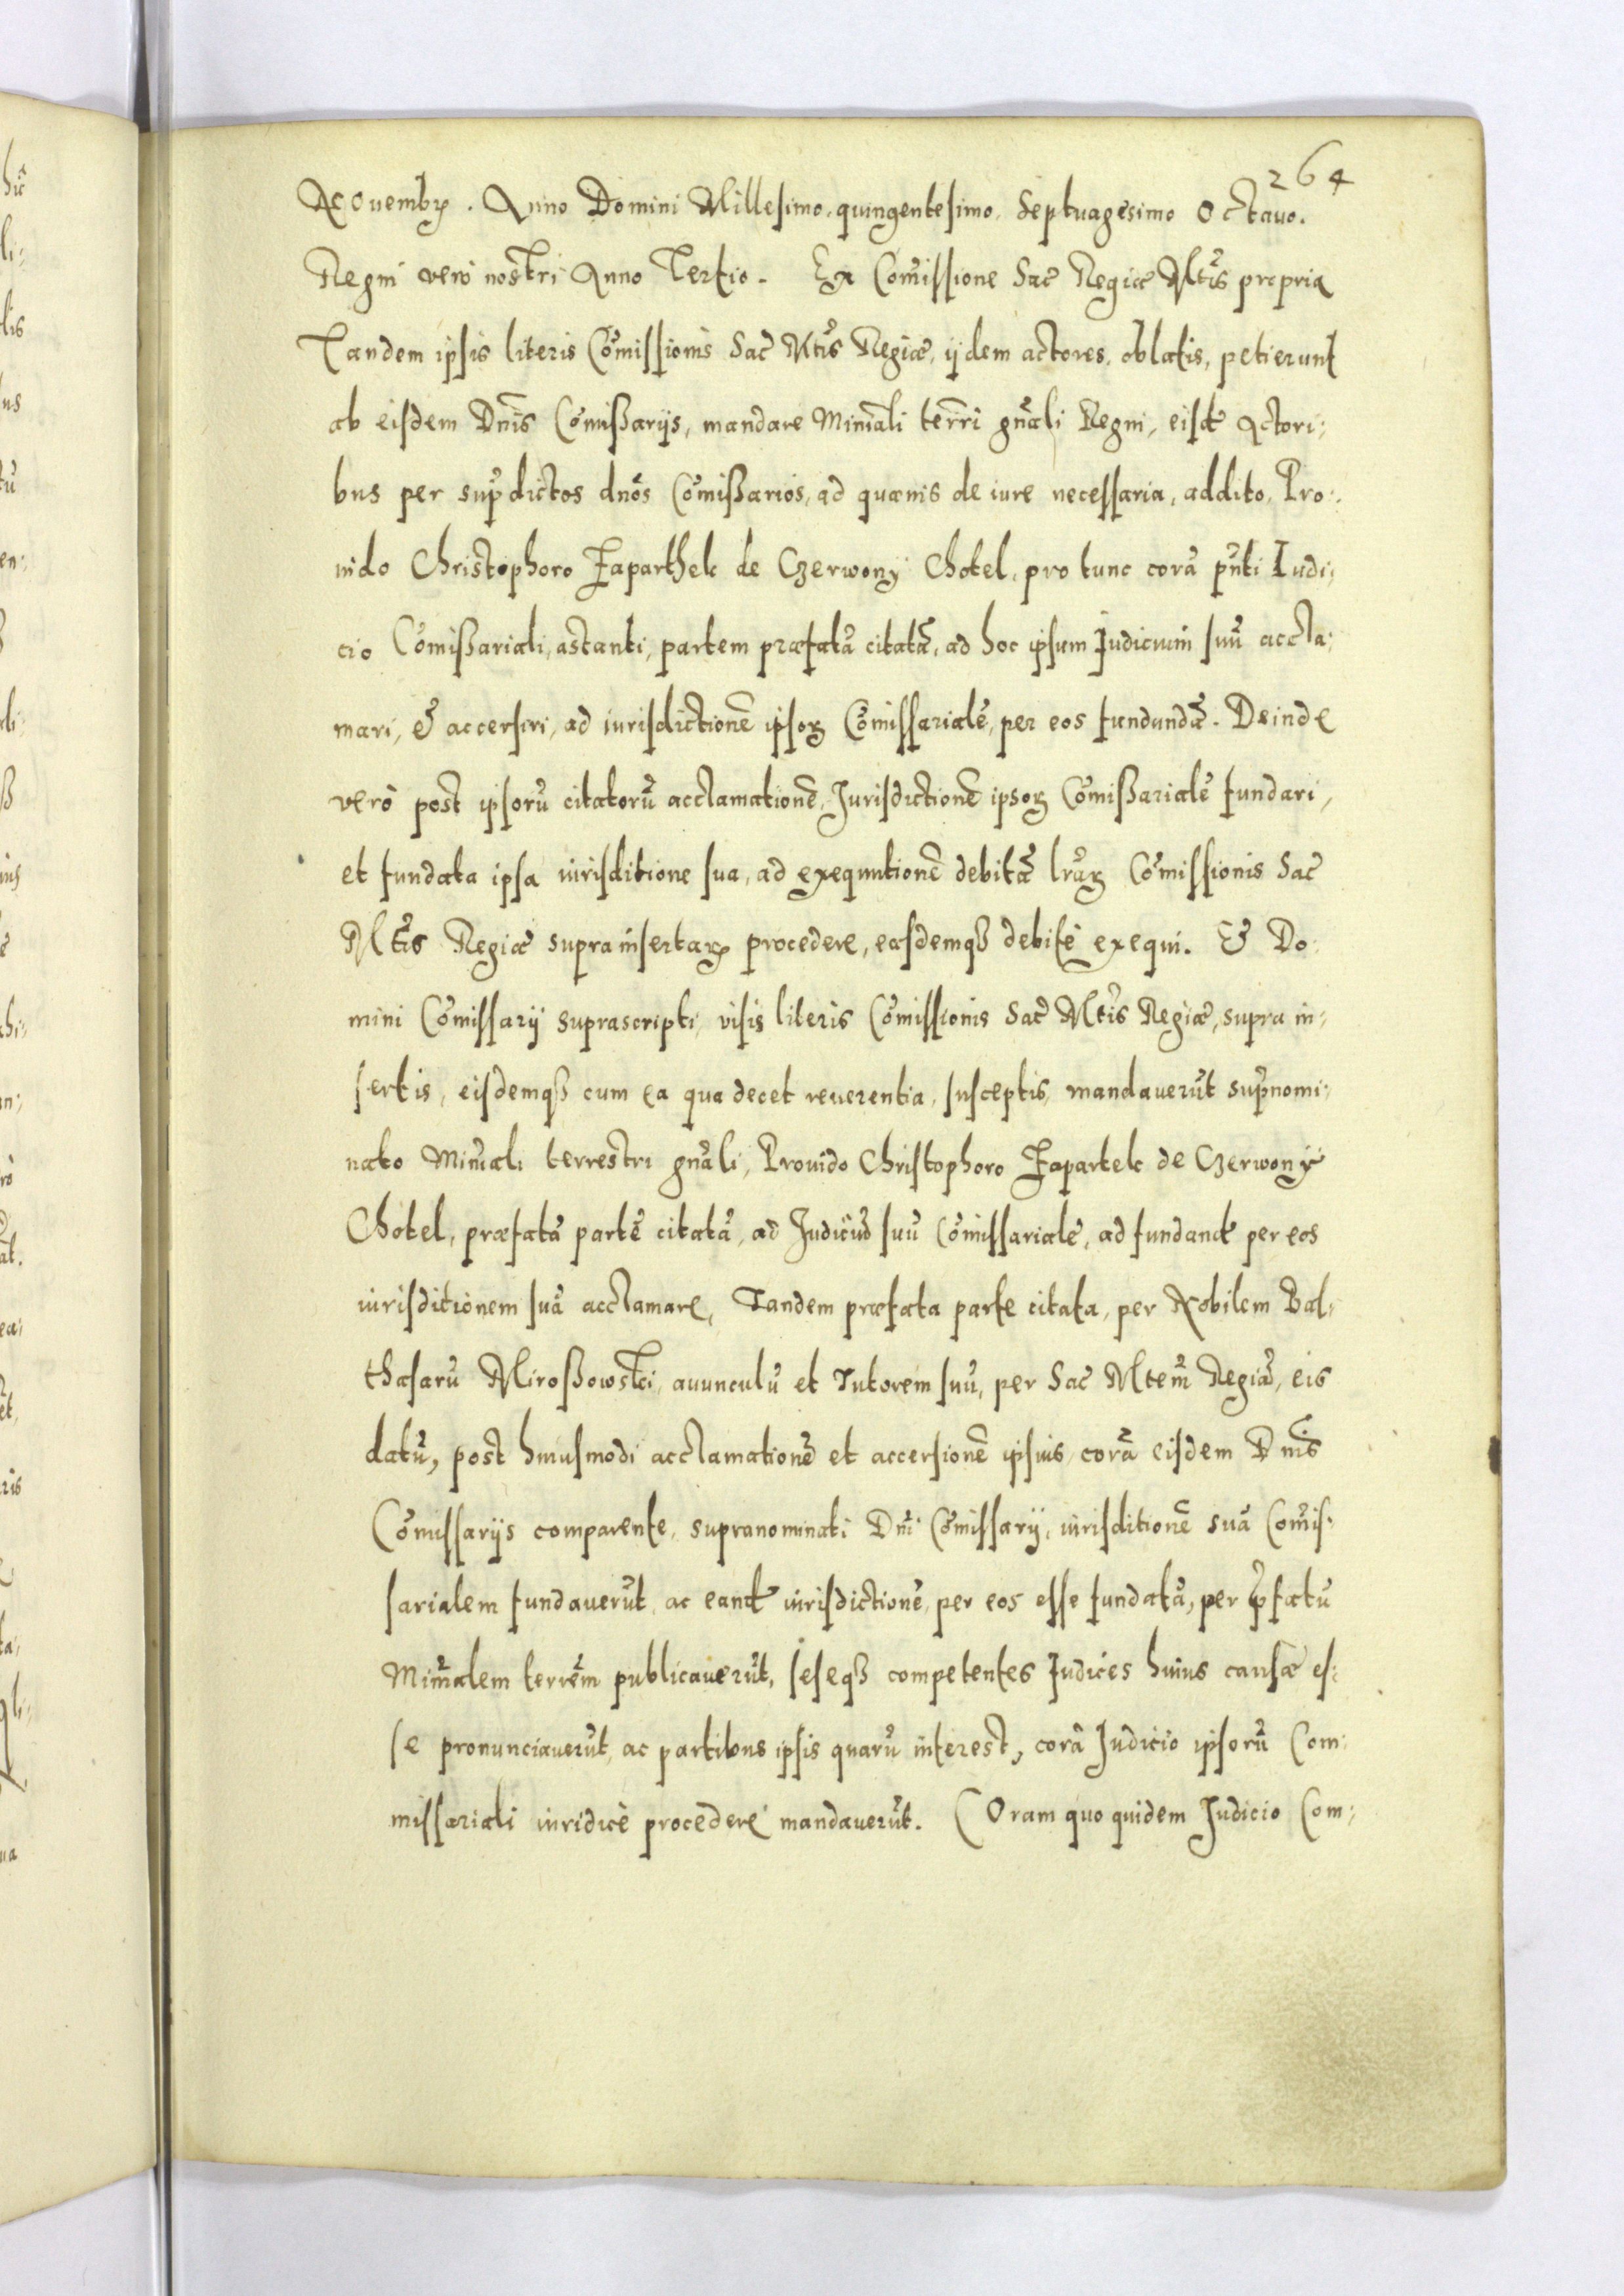 264
Nouembr. Anno Domini Millesimo quingentesimo Septuagesimo Octauo.
Regni verò nostri Anno Tertio. Ex Comissione Sac Regiæ Mtis propria
Tandem ipsis literis Comissionis Sac Mtis Regiæ, ijdem actores, oblatis, petierunt
ab eisdem Dnis Comißarijs, mandare Minrali terrri gnali Regni, eisd Actori:
bus per supdictos dnos Comißarios, ad quæuis de iure necessaria, addito, Pro:
uido Christophoro Łaparthek de Czerwony Chotel, pro tunc corā pnti Iudi:
cio Comißariali, astanti, partem præfatā citatā, ad hoc ipsum Iudicium suū accla:
mari, & accersiri, ad iurisdictionē ipsorum Comissarialē, per eos fundandā. Deinde
verò post ipsorū citatorū acclamationē, Jurisdictionē ipsorum Comißarialē fundari,
et fundata ipsa iurisditione sua, ad exequutionē debitā lrarum Comissionis Sac
Mtis Regiæ supra insertarum procedere, easdemqß debitè exequi. & Do:
mini Comissarij suprascripti, visis literis Comissionis Sac Mtis Regiæ, supra in:
sertis, eisdemqß cum ea qua decet reuerentia, susceptis, mandauerūt supnomi:
nato Minrali terrestri gnali, Prouido Christophoro Łapartek de Czerwony
Chotel, præfatā partē citatā, ad Judiciū suū Comissarialē, ad fundand per eos
iurisditionem suā acclamare, Tandem præfata parte citata, per Nobilem Bal:
thasarū Miroßowski, auunculū et Tutorem suū, per Sac Mtem Regiā, eis
datū, post huiusmodi acclamationē et accersionē ipsius, corā eisdem Dnis
Comissarijs comparente, supranominati Dni Comissarij, iurisditionē suā Comis:
sarialem fundauerūt, ac eand iurisdictionē, per eos esse fundatā, per pfatū
Minralem terrem publicauerūt, seseqß competentes Iudices huius causæ es:
se pronunciauerūt, ac partibus ipsis quarū interest, corā Judicio ipsorū Com:
missariali iuridicè procedere mandauerūt. Coram quo quidem Judicio Com: